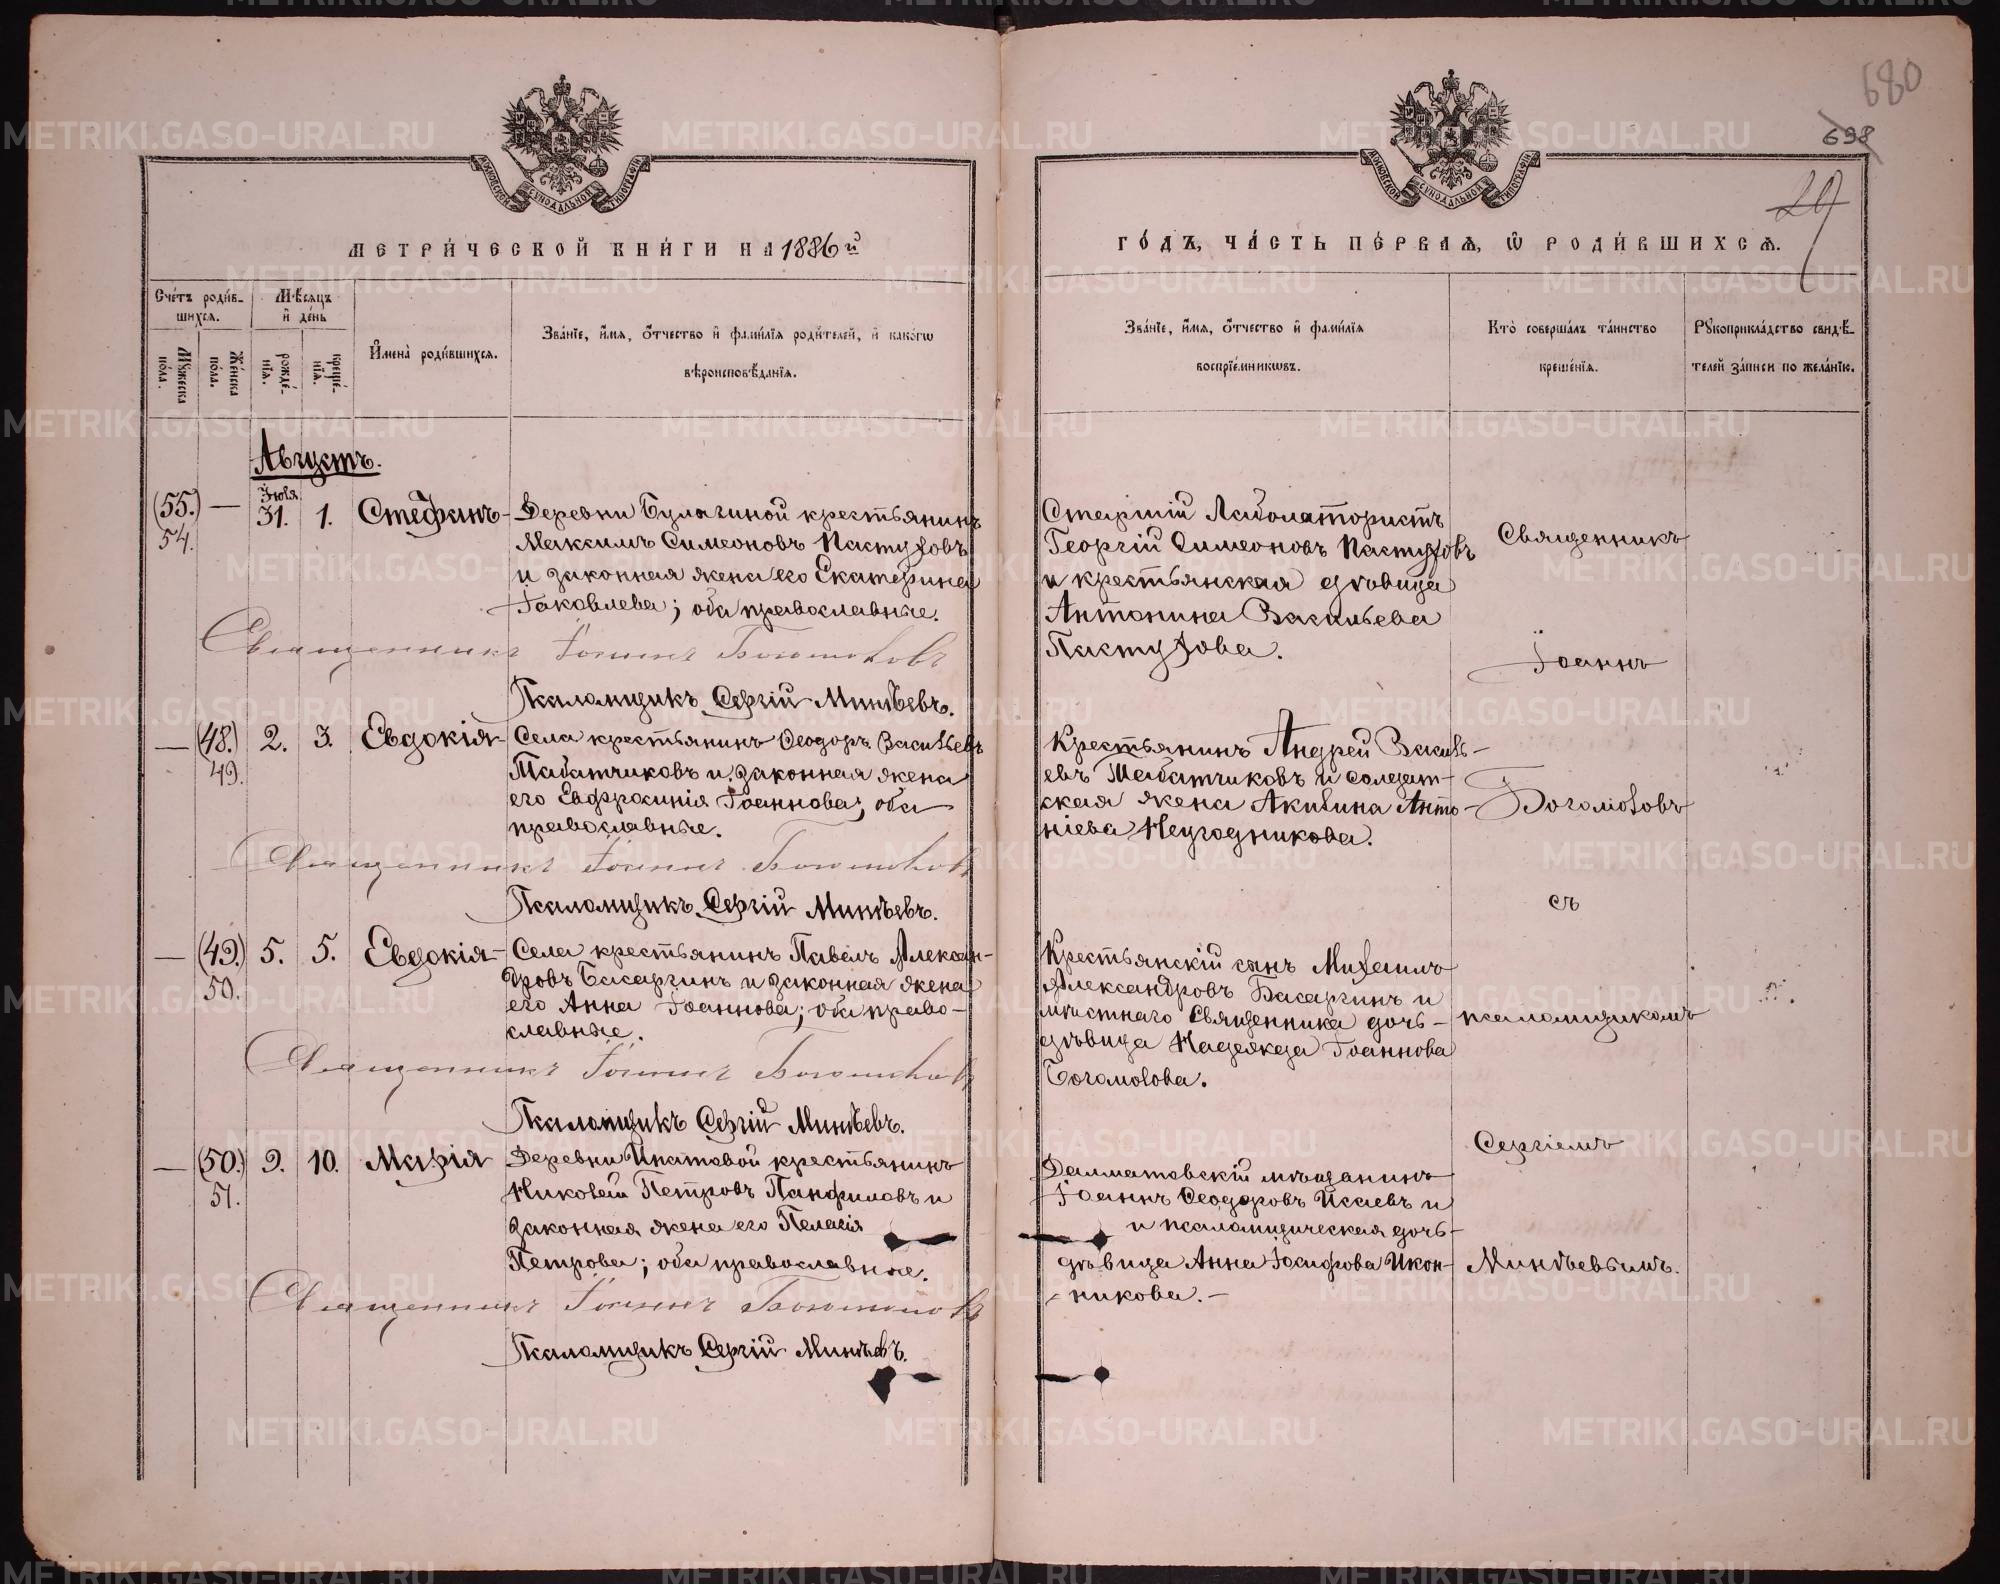 680
698
29
МОСКОВСКОЙ СѴНОДАЛЬНОЙ ТИПОГРАФІИ
МОСКОВСКОЙ СѴНОДАЛЬНОЙ ТИПОГРАФІИ
МЕТРИ́ЧЕСКОЙ КНИ́ГИ НА 1886й
ГО́ДЪ, ЧА́СТЬ ПЕ́РВАЯ, Ѿ РОДИ́ВШИХСЯ.
Сче́тъ роди́в-
шихся.
Мѣ́сяцъ
и де́нь
Му́жеска по́ла.
Же́нска по́ла.
рожде́-
нія.
креще́-
нія.
Имена̀ роди́вшихся.
Зва́ніе, и́мя, о́тчество и фами́лія роди́телей, и како́гѡ
вѣроисповѣ́данія.
Зва́ніе, и́мя, о́тчество и фами́лія
воспріе́мникѡвъ.
Кто̀ соверша́лъ та́инство
креще́нія.
Рукоприкла́дство свидѣ́-
телей за́писи по жела́нію.
Августъ.
(55.) — Іюля
54. 31. 1. Стефанъ - Деревни Булыгиной крестьянинъ
Максимъ Симеоновъ Пастуховъ
и законная жена его Екатерина
Іаковлева; оба православные.
Священникъ Іоаннъ Богомоловъ
Псаломщикъ Сергій Минѣевъ.
Старшій Лаборатористъ
Георгій Симеоновъ Пастуховъ
и крестьянская дѣвица
Антонина Васильева
Пастухова.
— (48.) 2. 3. Евдокія - Села крестьянинъ Ѳеодоръ Васильевъ
49. Табатчиковъ и законная жена
его Евфросинія Іоаннова; оба
православные.
Священникъ Іоаннъ Богомоловъ
Псаломщикъ Сергій Минѣевъ.
Крестьянинъ Андрей Василь-
евъ Табатчиковъ и солдат-
ская жена Акилина Анто-
ніева Неугодникова.
— (49.) 5. 5. Евдокія - Села крестьянинъ Павелъ Алексан-
50. дровъ Басаргинъ и законная жена
его Анна Іоаннова; оба право-
славные.
Священникъ Іоаннъ Богомоловъ
Псаломщикъ Сергій Минѣевъ.
Крестьянскій сынъ Михаилъ
Александровъ Басаргинъ и
мѣстнаго Священника дочь -
дѣвица Надежда Іоаннова
Богомолова.
— (50.) 9. 10. Марія Деревни Ипатовой крестьянинъ
51. Николай Петровъ Панфиловъ и
законная жена его Пелагія
Петрова; оба православные.
Священникъ Іоаннъ Богомоловъ
Псаломщикъ Сергій Минѣевъ.
Далматовскій мѣщанинъ
Іоаннъ Ѳеодоровъ Исаевъ и
и псаломщическая дочь -
дѣвица Анна Іосифова Икон-
никова. -
Священникъ
Іоаннъ
Богомоловъ
съ
псаломщикомъ
Сергіемъ
Минѣевымъ.
METRIKI.GASO-URAL.RU